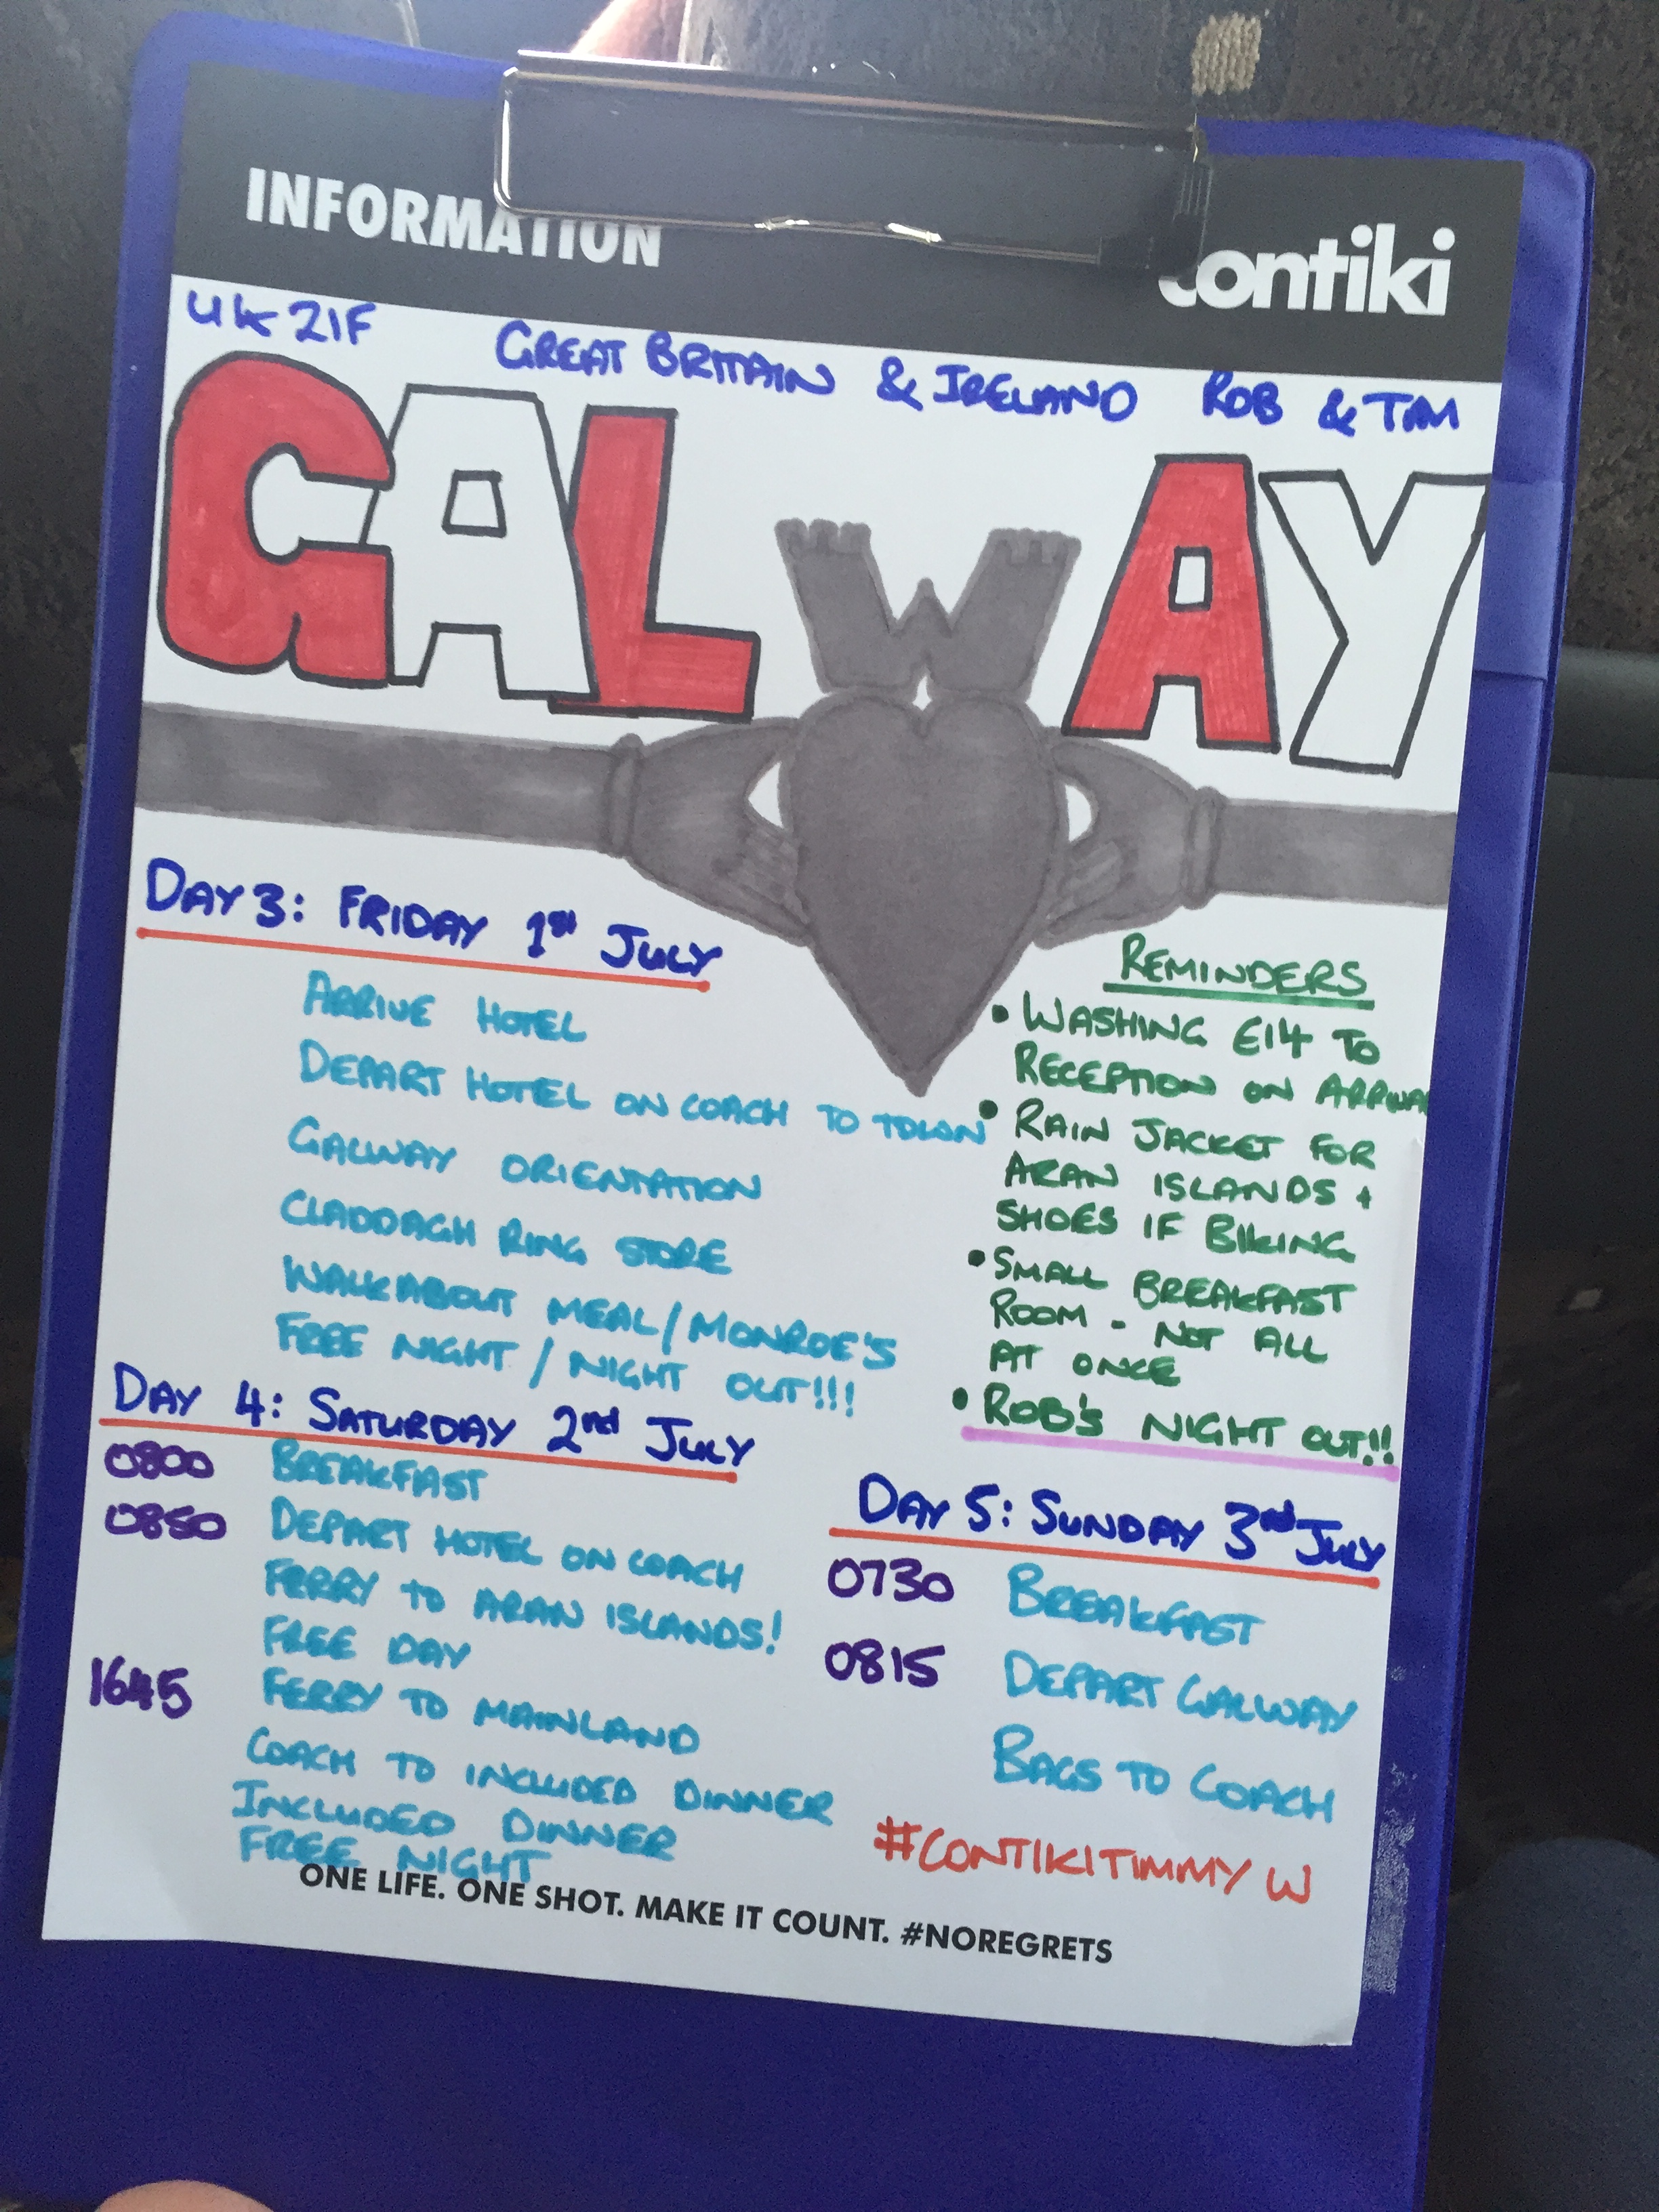 INFORMATION
contiki
UK21F GREAT BRITAIN & IRELAND ROB & TIM
GALWAY
DAY 3: FRIDAY 1st JULY
ARRIVE HOTEL
DEPART HOTEL ON COACH TO TOWN
GALWAY ORIENTATION
CLADDAGH RING STORE
WALKABOUT MEAL/MONROE'S
FREE NIGHT/NIGHT OUT!!!
REMINDERS
• WASHING €14 TO
RECEPTION ON ARRIVAL
• RAIN JACKET FOR
ARAN ISLANDS +
SHOES IF BIKING
• SMALL BREAKFAST
ROOM - NOT ALL
AT ONCE
• ROB'S NIGHT OUT!!
DAY 4: SATURDAY 2nd JULY
0800 BREAKFAST
0850 DEPART HOTEL ON COACH
FERRY TO ARAN ISLANDS!
FREE DAY
1645 FERRY TO MAINLAND
COACH TO INCLUDED DINNER
INCLUDED DINNER
FREE NIGHT
DAY 5: SUNDAY 3rd JULY
0730 BREAKFAST
0815 DEPART GALWAY
BAGS TO COACH
#CONTIKITIMMY W
ONE LIFE. ONE SHOT. MAKE IT COUNT. #NOREGRETS